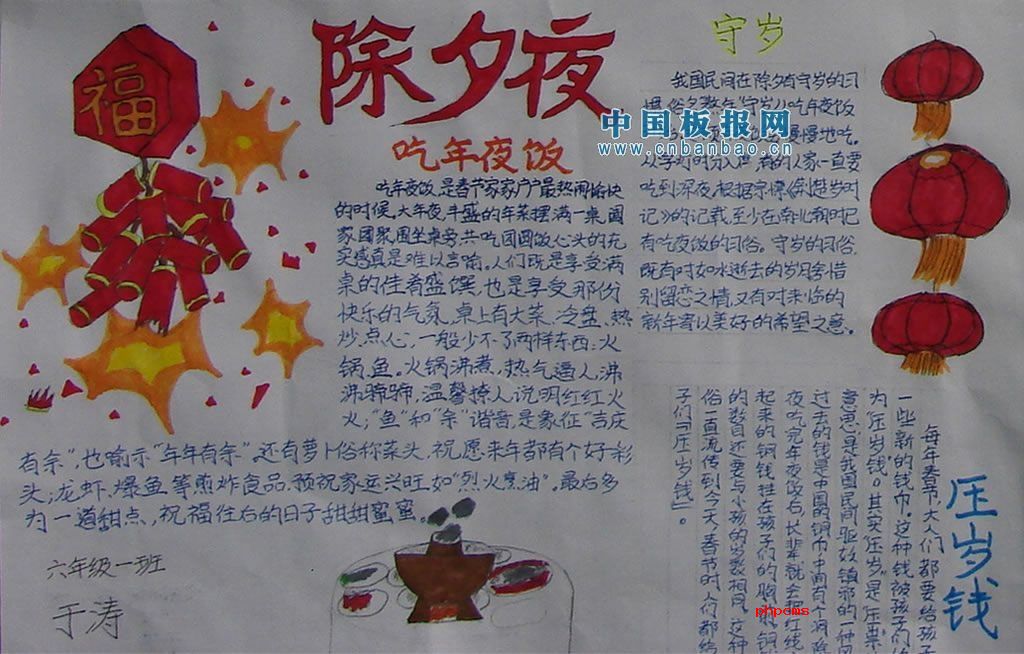 福
除夕夜
吃年夜饭
吃年夜饭,是春节家家户户最热闹愉快
的时候。大年夜,丰盛的年菜摆满一桌,阖
家团聚,围坐桌旁,共吃团圆饭,心头的充
实感真是难以言喻。人们既是享受满
桌的佳肴盛馔,也是享受那份
快乐的气氛,桌上有大菜、冷盘、热
炒、点心,一般少不了两样东西:火
锅、鱼。火锅沸煮,热气逼人,沸
沸腾腾,温馨撩人,说明红红火
火;"鱼"和"余"谐音,是象征"吉庆
有余",也喻示"年年有余"。还有萝卜俗称菜头,祝愿来年都有个好彩
头;龙虾、爆鱼等煎炸食品,预祝家运兴旺如"烈火烹油"。最后多
为一道甜点,祝福往后的日子甜甜蜜蜜。
六年级一班
于涛
守岁
我国民间在除夕有守岁的习
慢慢地吃。
吃到深夜。根据宗懔《荆楚岁时
记》的记载,至少在南北朝时已
有吃年夜饭的习俗。守岁的习俗,
既有对如水逝去的岁月含惜
别留恋之情,又有对来临的
新年寄以美好的希望之意。
中国板报网
www.cnbanbao.cn
压岁钱
每年春节,大人们都要给孩子
一些新的钱币。这种钱被孩子们
为"压岁钱"。其实"压岁"是"压祟"
意思,是我国民间驱妖镇邪的一种
过去的钱是中国圆铜币,中间有个洞,除
夜吃完年夜饭后,长辈就去把红线
起来的铜钱挂在孩子们的胸前,铜
的数目还要与小孩的岁数相同,这种
俗一直流传到今天,春节时人们都给
子们"压岁钱"。
phpcms